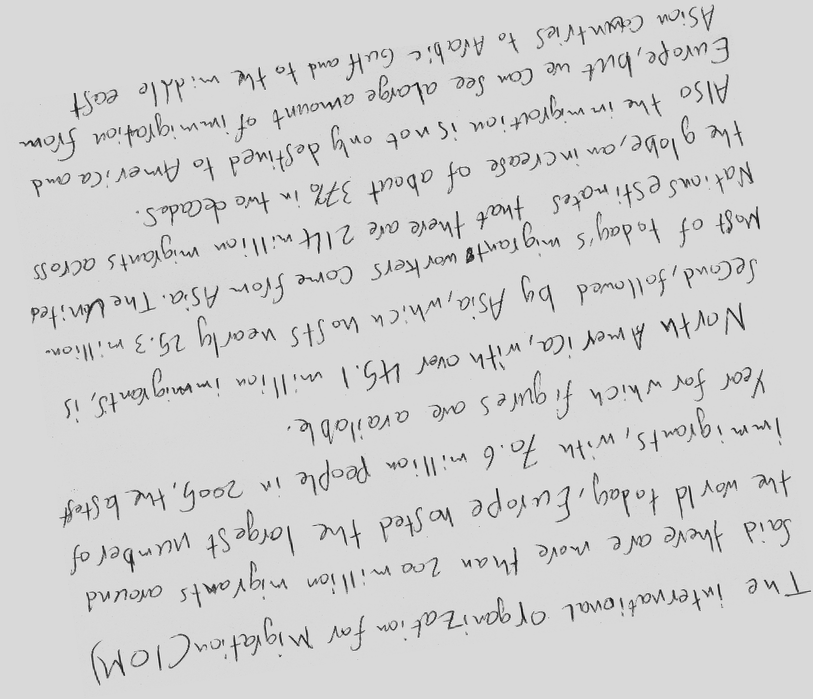 The international organization for Migration (IOM)
Said there are more than 200 million migrants around
the world today, Europe hosted the largest number of
immigrants, with 70.6 million people in 2005, the lastest
Year for which figures are available.
North America, with over 45.1 million immigrants, is
Second, followed by Asia, which hosts nearly 25.3 million.
Most of today's migrants workers come from Asia. The Unites
Nations estimates that there are 214 million migrants across
the globe, an increase of about 37% in two decads.
Also the immigration is not only destined to America and
Europe, but we can see alarge amount of immigration from
Asian Countries to Arabic Gulf and to the middle east